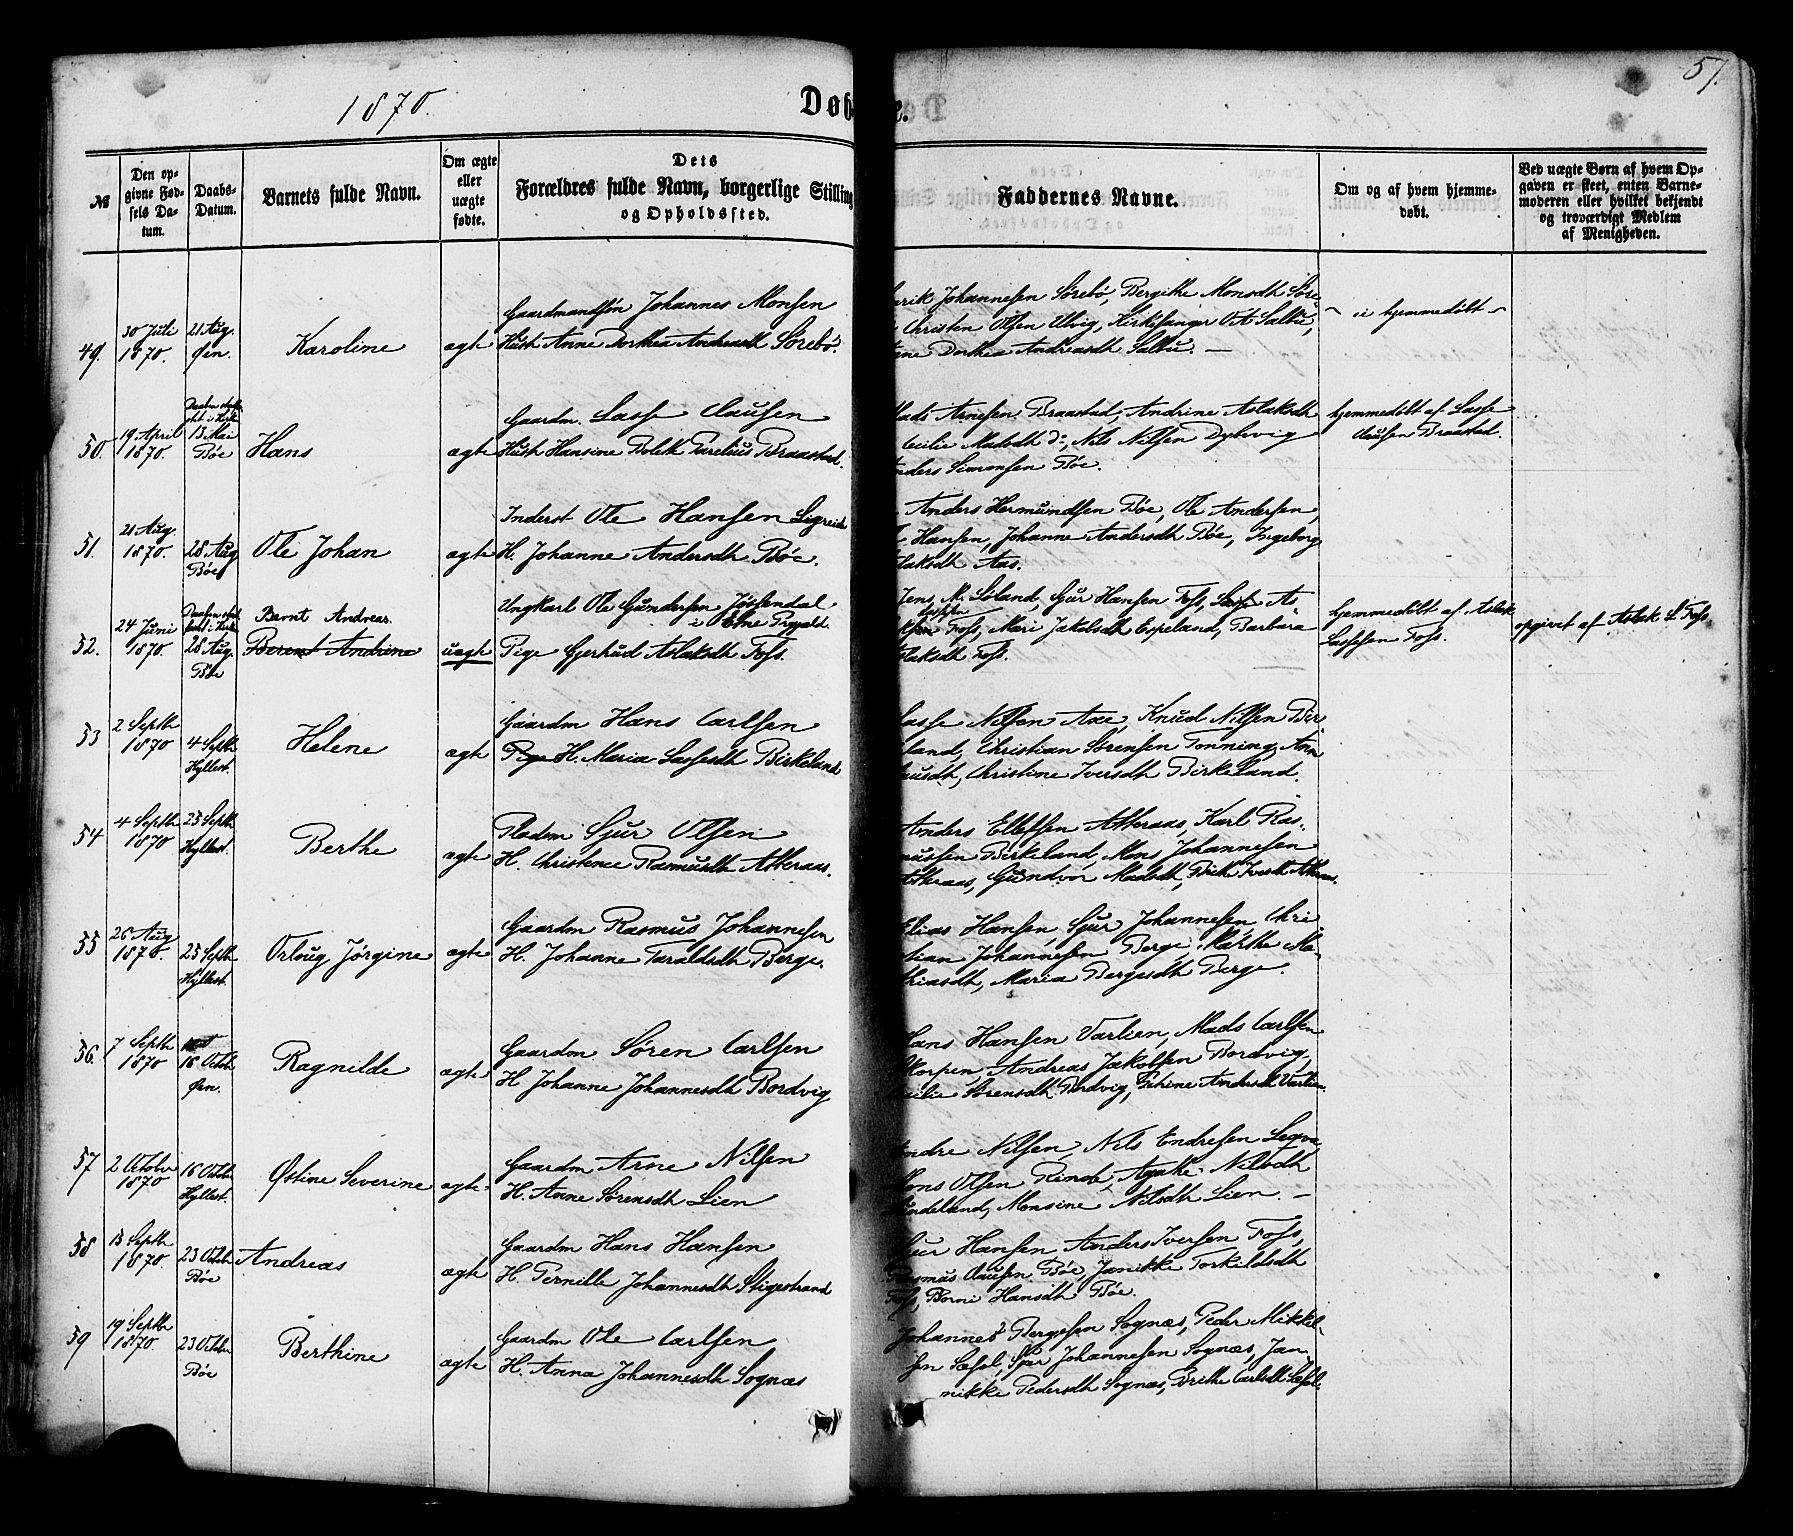 1870.
Døbte.
57.
№
Den opgivne Fødsels Datum.
Daabs-Datum.
Barnets fulde Navn.
Om ægte eller uægte fødte.
Dets Forældres fulde Navn, borgerlige Stilling og Opholdssted.
Faddernes Navne.
Om og af hvem hjemmedøbt.
Ved uægte Børn af hvem Opgaven er skeet, enten Barnemoderen eller hvilket bekjendt og troværdigt Medlem af Menigheden.
49. 30 Juli 1870. 21 Aug. Øen. Karoline ægte
Gaardmandsøn Johannes Monsen
Hust Anne Dorthea Andreasdh Sørebø.
Johannesen Sørebø, Bergithe Monsdh Søre-
Christen Olsen Ulvig, Kirkesanger O A Salbu,
Dorthea Andreasdh Salbu. —
— ei hjemmedöbt —
50. 19 April 1870. 15 Mai Bøe Hans ægte
Gaardm. Lasse Clausen
Hust Hansine Bolek Parelius Braastad.
Mads Arnesen Braastad, Andrine Aslaksdh
Cecilie Madsdh do, Nils Nilsen Dybvig
Anders Simonsen Bøe.
hjemmedöbt af Lasse
Clausen Braastad.
51. 21 Aug 1870. 28 Aug Bøe Ole Johan ægte
Inderst Ole Hansen Ligreid
H. Johanne Andersdh Bøe.
Anders Hermundsen Bøe, Ole Andersen,
Hansen, Johanne Andersdh Bøe, Ingeborg
Aslaksdh Aas.
52. 24 Juni 1870. 28 Aug. Bøe
Bernt Andreas.
Berent Andrina uægte
Ungkarl Ole Gundersen Jøssendal
i Etne Prgjæld
Pige Gjerhud Aslaksdh Fofs.
Jens M. Loland, Gjur Hansen Fofs, Lasse As-
Fofs, Mari Jakobsdh Espeland, Barbara
Aslaksdh Fofs.
hjemmedöbt af Aslak
Lassesen Fofs.
opgivet af Aslak L Fofs.
53 2 Septbr 1870 4 Septbr Hyllest. Helene ægte
Gaardm Hans Carlsen
Pige H. Maria Lassesdh Birkeland
Lasse Nilsen Axe, Knud Nilsen Bir
land, Christian Sørensen Tonning, Ann
Christine Iversdh Birkeland.
54 4 Septbr 1870 25 Septbr Hyllest. Berthe ægte
Pladsm Sjur Olsen
H. Christence Rasmusdh Askeraas.
Anders Ellefsen Askeraas, Karl Ras-
mussen Birkeland, Mons Johannesen
Askeraas, Gundvor Madsdh, Brithe Iversdh Askeraas.
55 26 Aug 1870. 25 Septbr Hyllest. Orloug Jørgine ægte
Gaardm Rasmus Johannesen
H. Johanne Taraldsdh Berge.
Elias Hansen, Sjur Johannesen, Chri
stian Johannesen Berge, Märthe Ma-
thiasdh, Maria Bergesdh Berge.
56. 7 Septbr 1870 16 Octobr Øen. Ragnilde ægte
Gaardm. Søren Carlsen
H Johanne Johannesdh Bordvig
Hans Hansen Varlien, Mads Carlsen
Skorpen, Andreas Jakobsen Bordvig,
Cecilie Sørensdh Bordvig, Andersdh Varlien
57 2 October 1870 16 Octobr Hyllest. Østine Severine ægte
Gaardm Arne Nilsen
H. Anne Sørensdh Lien
Andre Nilsen, Nils Endresen Leqve,
Mons Olsen Rinde, Agathe Nilsdh
Monsine Nilsdh Lien. —
58 13 Septbr 1870. 23 Octobr Bøe Andreas ægte
Gaardm Hans Hansen
H. Pernille Johannesdh Stigestrand
Gjur Hansen, Anders Iversen Fofs,
Rasmus Clausen Bøe, Janikke Torkildsdh
Fofs, Borni Hansdh Bøe.
59 19 Septbr 1870. 23 Octobr Bøe Berthine ægte
Gaardm Ole Carlsen
H. Anna Johannesdh Sognæs
Johannes Bergesen Sognæs, Peder Mikkel-
sen Sæsol, Sjur Johannesen Sognæs, Jan-
nikke Pedersdh Sognæs, Brithe Carlsdh Sæsol.